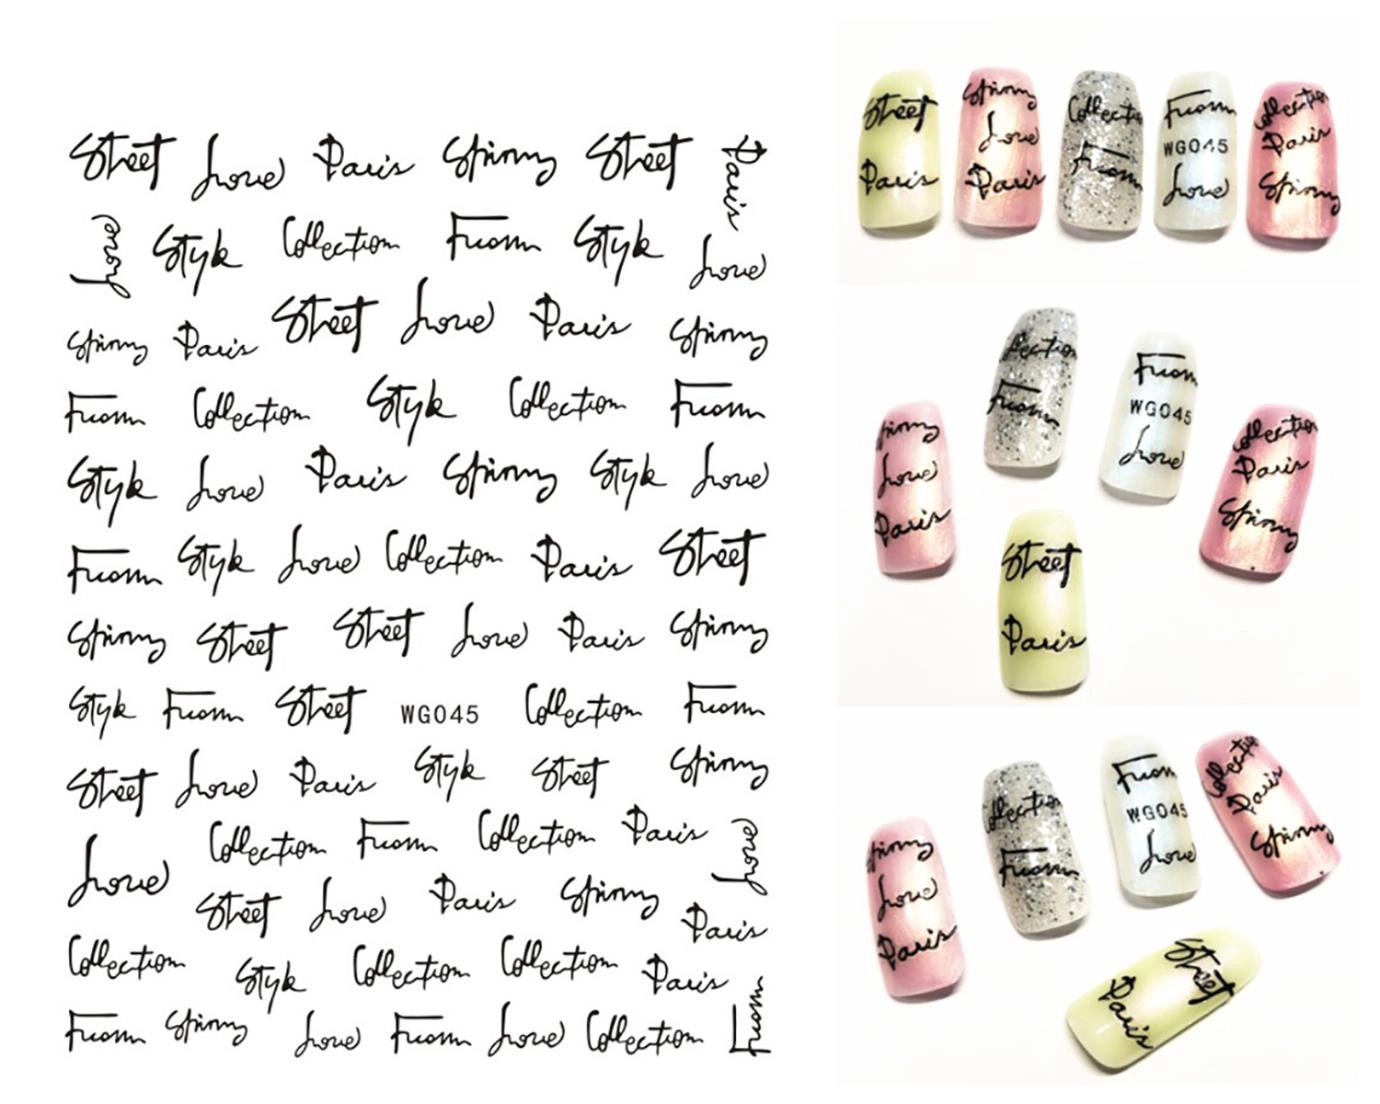 Street Love Paris Spinny Street Paris
Love Style Collection From Style Love
Spinny Paris Street Love Paris Spinny
From Collection Style Collection From
Style Love Paris Spinny Style Love
From Style Love Collection Paris Street
Spinny Street Street Love Paris Spinny
Style From Street WG045 Collection From
Street Love Paris Style Street Spinny
Love Collection From Collection Paris Love
Street Love Paris Spinny Paris
Collection Style Collection Collection Paris
From Spinny Love From Love Collection From
Street
Paris
Spinny
Love
Paris
Collection
From
From
WG045
Love
Collection
Paris
Spinny
Spinny
Love
Paris
Collection
From
From
WG045
Love
Collection
Paris
Spinny
Street
Paris
Spinny
Love
Paris
Collection
From
From
WG045
Love
Collection
Paris
Spinny
Street
Paris